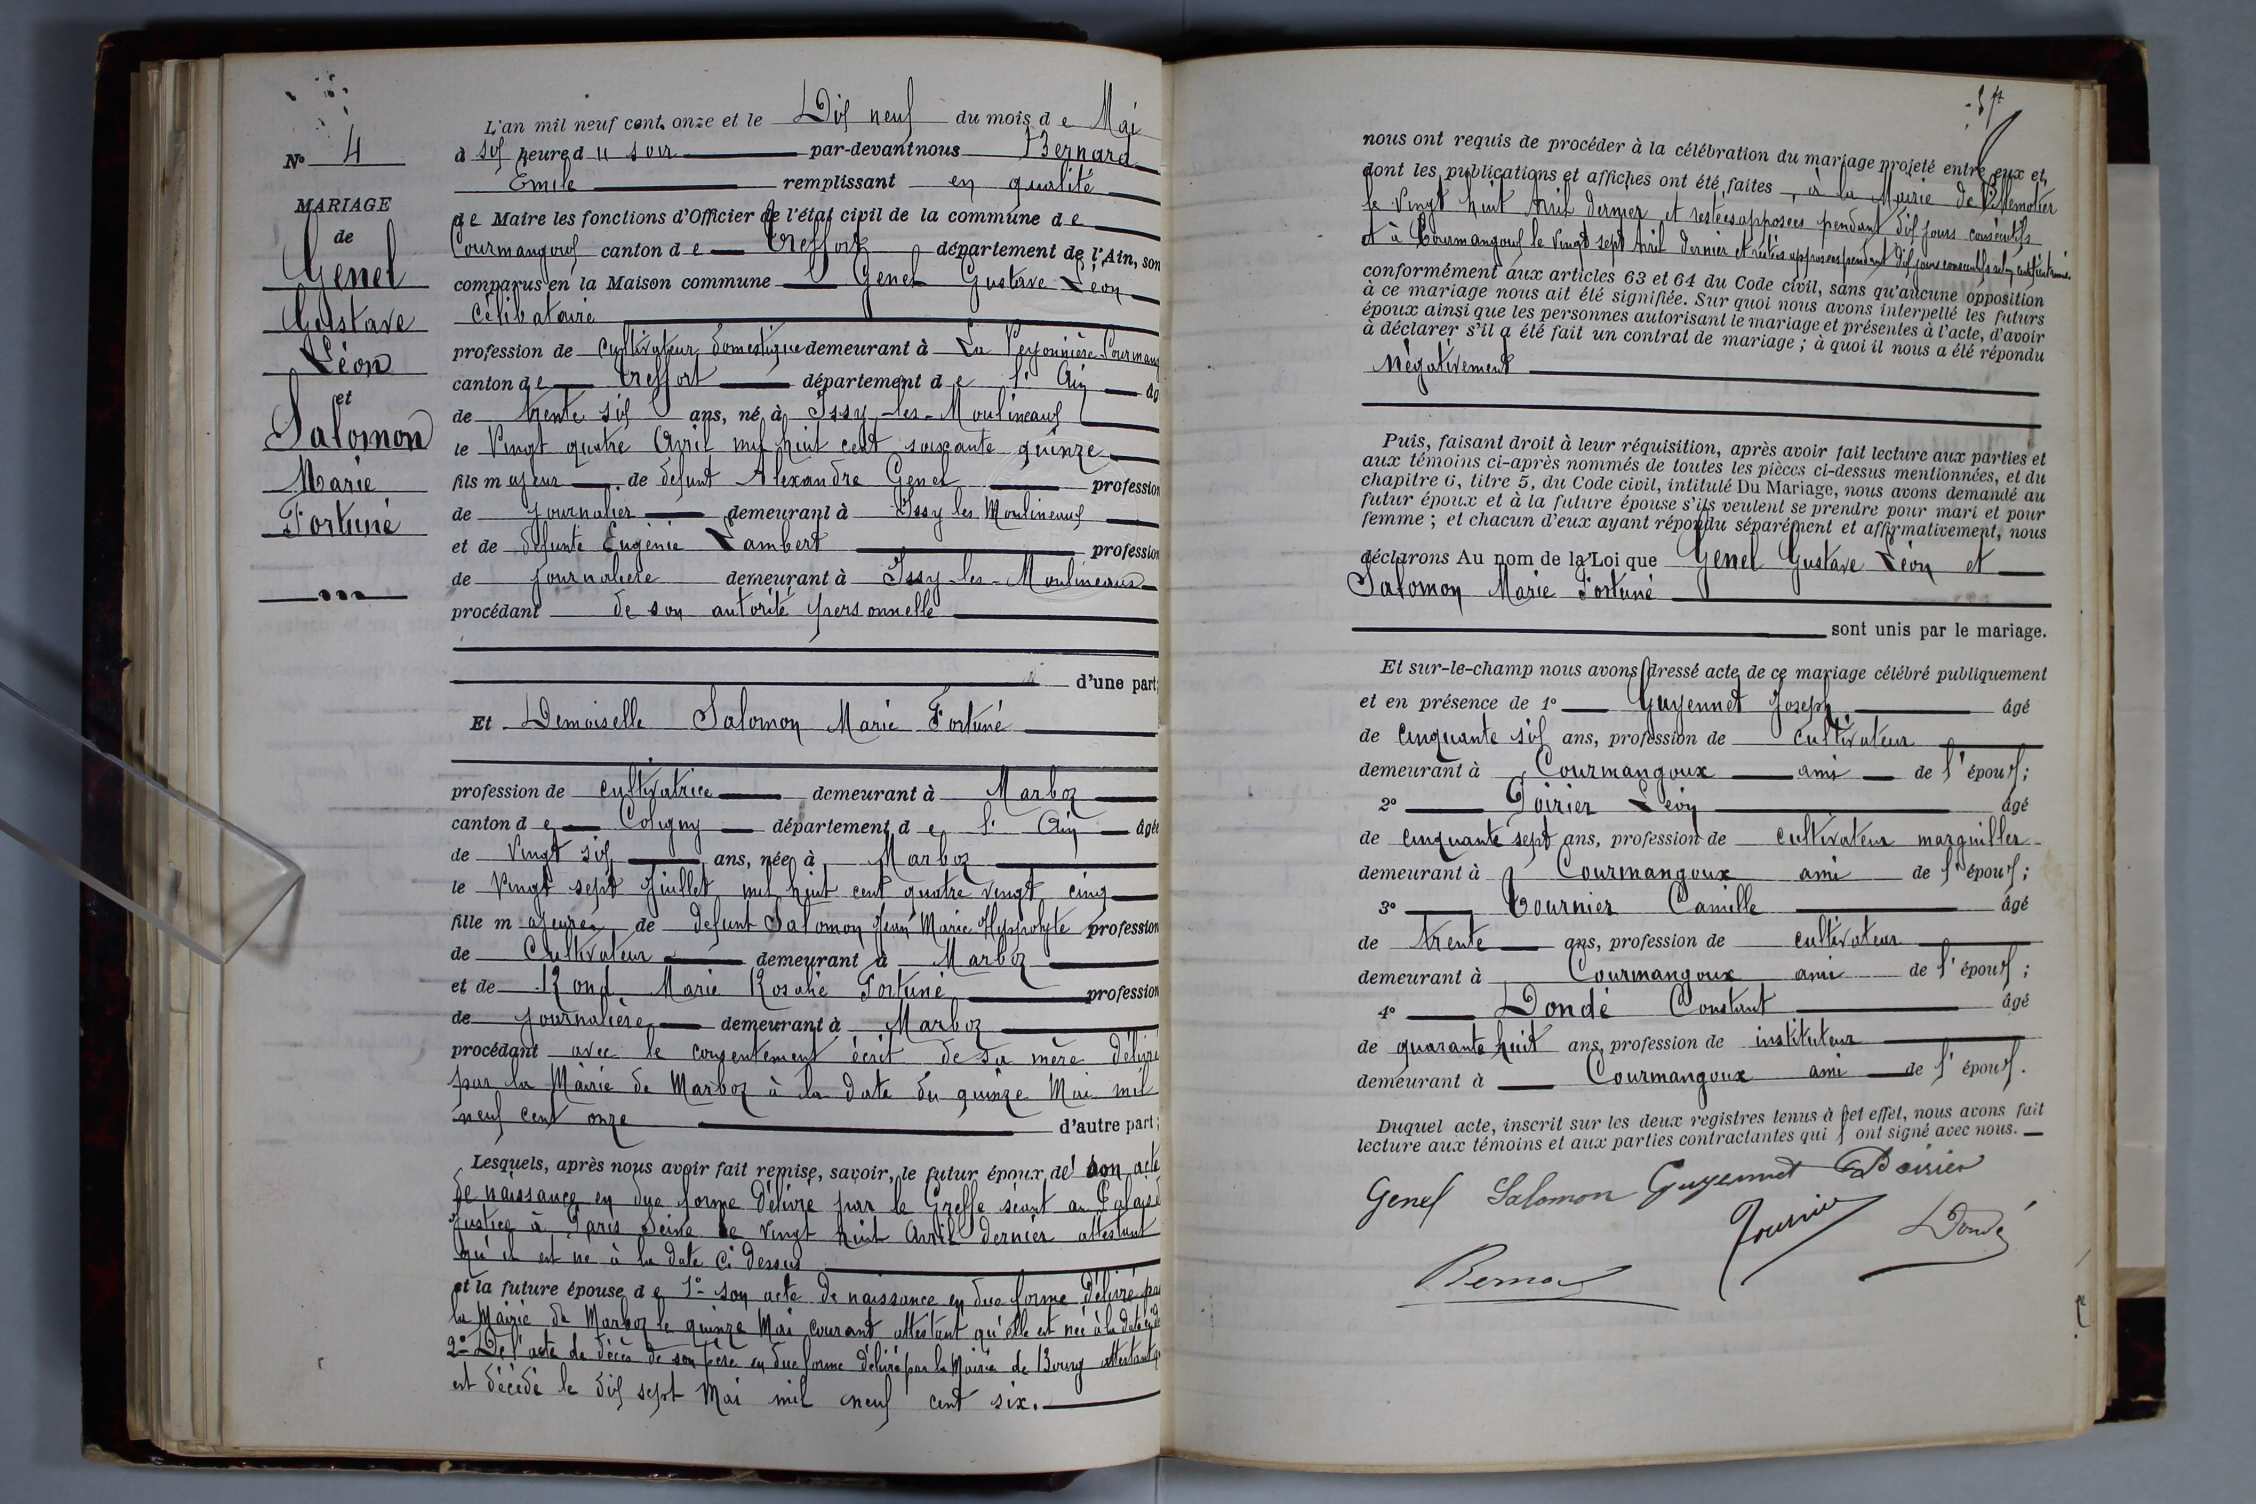 N° 4
MARIAGE
de
Genel
Gustave
Léon
et
Salomon
Marie
Fortuné
L'an mil neuf cent onze et le Dix neuf du mois de Mai
à six heure du soir par-devant nous Bernard
Emile remplissant en qualité
de Maire les fonctions d'Officier de l'état civil de la commune de
Courmangoux canton de Treffort département de l'Ain, son
comparus en la Maison commune Genel Gustave Léon
Célibataire
profession de cultivateur domestique demeurant à La Courmang
canton de Treffort département de l'Ain âg
de trente six ans, né à Issy-les-Moulineaux
le Vingt quatre Avril mil huit cent soixante quinze
fils majeur de défunt Alexandre Genel profession
de journalier demeurant à Issy les Moulineaux
et de défunte Eugénie Lambert profession
de journalière demeurant à Issy-les-Moulineaux
procédant de son autorité personnelle
d'une part;
Et Demoiselle Salomon Marie Fortuné
profession de cultivatrice demeurant à Marboz
canton de Coligny département de l'Ain âgée
de Vingt six ans, née à Marboz
le Vingt sept Juillet mil huit cent quatre vingt cinq
fille majeure de défunt Salomon Jean Marie Hyppolyte profession
de Cultivateur demeurant à Marboz
et de Rond Marie Rosalie Fortuné profession
de journalière demeurant à Marboz
procédant avec le consentement écrit de sa mère délivré
par la Mairie de Marboz à la date du quinze Mai mil
neuf cent onze d'autre part;
Lesquels, après nous avoir fait remise, savoir, le futur époux de son acte
de naissance en due forme délivré par le Greffe séant au Palais d
Justice à Paris Seine le vingt huit Avril dernier attestant
qu'il est né à la date ci dessus
et la future épouse de 1° son acte de naissance en due forme délivré par
la Mairie de Marboz le quinze Mai courant attestant qu'elle est née à la date
2° De l'acte de décès de son père en due forme délivré par la Mairie de Bourg attestant
est décédé le dix sept Mai mil neuf cent six.
nous ont requis de procéder à la célébration du mariage projeté entre eux et,
dont les publications et affiches ont été faites à la Mairie de Villemotier
le Vingt huit Avril dernier et restées apposées pendant dix jours consécutifs
et à Courmangoux le vingt sept Avril dernier et restées apposées pendant dix jours consécutifs
conformément aux articles 63 et 64 du Code civil, sans qu'aucune opposition
à ce mariage nous ait été signifiée. Sur quoi nous avons interpellé les futurs
époux ainsi que les personnes autorisant le mariage et présentes à l'acte, d'avoir
à déclarer s'il a été fait un contrat de mariage; à quoi il nous a été répondu
Négativement
Puis, faisant droit à leur réquisition, après avoir fait lecture aux parties et
aux témoins ci-après nommés de toutes les pièces ci-dessus mentionnées, et du
chapitre 6, titre 5, du Code civil, intitulé Du Mariage, nous avons demandé au
futur époux et à la future épouse s'ils veulent se prendre pour mari et pour
femme; et chacun d'eux ayant répondu séparément et affirmativement, nous
déclarons Au nom de la Loi que Genel Gustave Léon et
Salomon Marie Fortuné
sont unis par le mariage.
Et sur-le-champ nous avons dressé acte de ce mariage célébré publiquement
et en présence de 1° Guyennet Joseph âgé
de cinquante six ans, profession de cultivateur
demeurant à Courmangoux ami de l'époux;
2° Poirier Léon âgé
de cinquante sept ans, profession de cultivateur marguiller
demeurant à Courmangoux ami de l'époux;
3° Tournier Camille âgé
de trente ans, profession de cultivateur
demeurant à Courmangoux ami de l'époux;
4° Dondé Constant âgé
de quarante huit ans, profession de instituteur
demeurant à Courmangoux ami de l'époux.
Duquel acte, inscrit sur les deux registres tenus à cet effet, nous avons fait
lecture aux témoins et aux parties contractantes qui ont signé avec nous.
Genel Salomon Guyennet Poirier
Tournier Dondé
Bernard